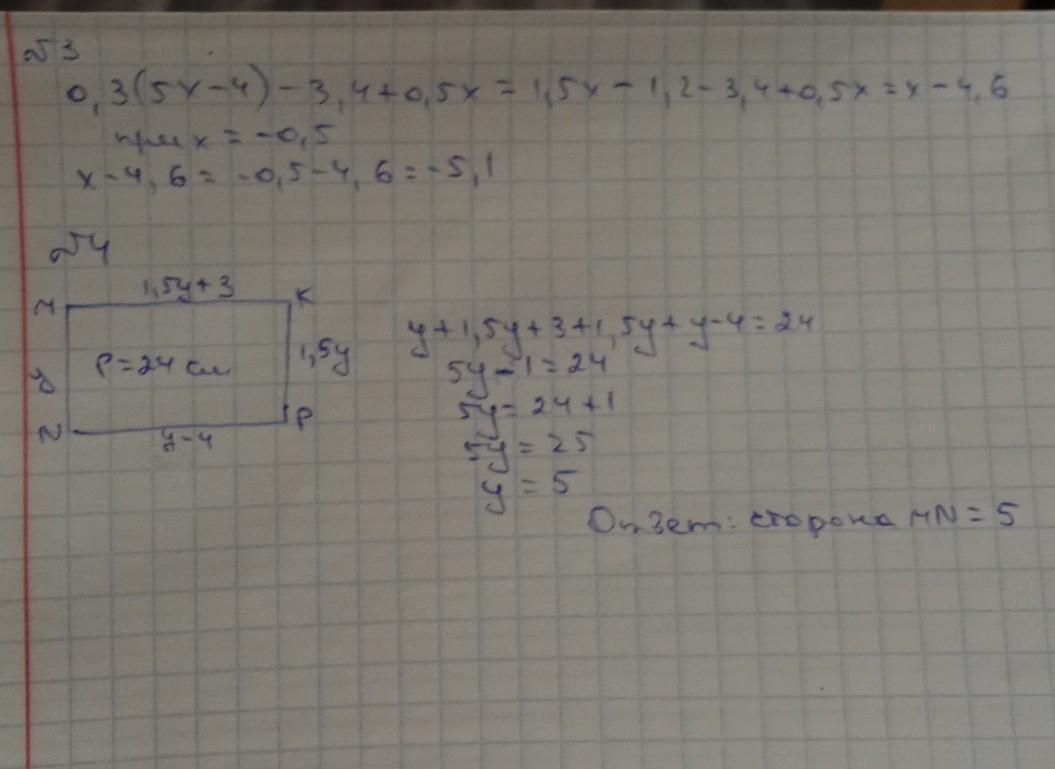 №3
0,3(5x-4)-3,4+0,5x=1,5x-1,2-3,4+0,5x=x-4,6
при x=-0,5
x-4,6=-0,5-4,6=-5,1
№4
1,5y+3
M
K
P=24 см
1,5y
y
N
P
y-4
y+1,5y+3+1,5y+y-4=24
5y-1=24
5y=24+1
5y=25
y=5
Ответ: сторона MN=5